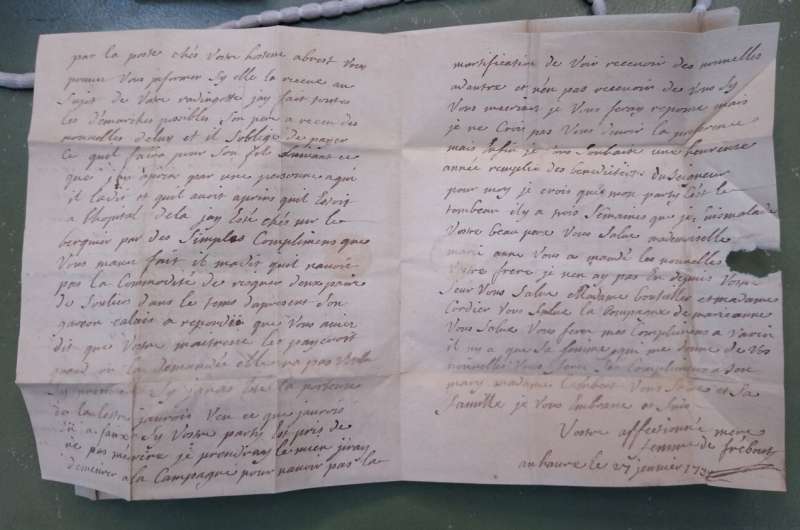 par la poste chés Vostre hostesse abrest Vous
pouvez Vous informer Sy elle la receue au
Sujet de Vostre redingotte jay fait toutes
les démarches posibles Son pere a receu des
nouvelles deluy et il Soblige de payer
Ce quil faira pour Son fils Suivant ce
que jay apris par une personne a qui
il ladit et quil avoit apris quil Estoit
a lhopital dela jay Esté chés mr le
berquier par des Simples Complimens que
Vous mavez fait il madit quil navoit
pas la Commodité de risquer deux paire
de Souliers dans le tems dapresent Son
garson calais a repondu que Vous aviez
dit que Vostre maitresse les payeroit
quand on la demandée elle na pas Voulu
Sy javois Esté la porteuse
de la lettre jaurois Veu ce que jaurois
Eu a faire Sy Vostre party Est pris de
ne pas mecrire je prendray le mien jiray
demeurer a la Campagne pour navoir pas la
mortification de Voir recevoir des nouvelles
adautre et nen pas recevoir de Vous Sy
Vous mecrivez je Vous feray reponse mais
je ne Crois pas Vous devoir la preference
mais Enfin je vous Souhaite une heureuse
année remplie des benedictions du Seigneur
pour moy je crois que mon party Est le
tombeau il y a trois Semaines que je suis malade
Vostre beau pere Vous Salue mademoiselle
marie anne Vous a mandé les nouvelles
Vostre frere je nen ay pas Eu depuis Vostre
Seur Vous Salue Madame boutailler et madame
Cordier Vous Salue la Compagne de marieanne
Vous Salue Vous ferez mes Complimens a Varin
il ny a que Sa femme qui me donne de Vos
nouvelles Vous ferez Ses Complimens a Son
mary madame Lambert Vous Salue et Sa
famille je Vous Embrasse et Suis
Vostre affectionné mere
femme de frebourt
au havre le 27 janvier 17